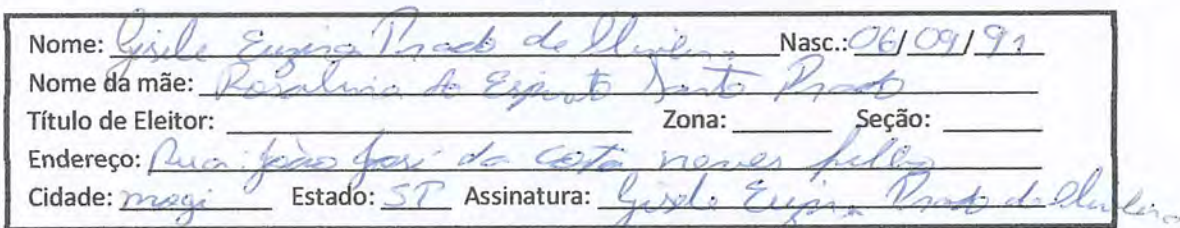 Nome: Gisele Eugina Prado de Oliveira Nasc.: 06/09/91
Nome da mãe: Rosalina do Espirito Santo Prado
Título de Eleitor: Zona: Seção:
Endereço: Rua: João José da Costa neves filho
Cidade: mogi Estado: SP Assinatura: Gisele Eugina Prado de Oliveira